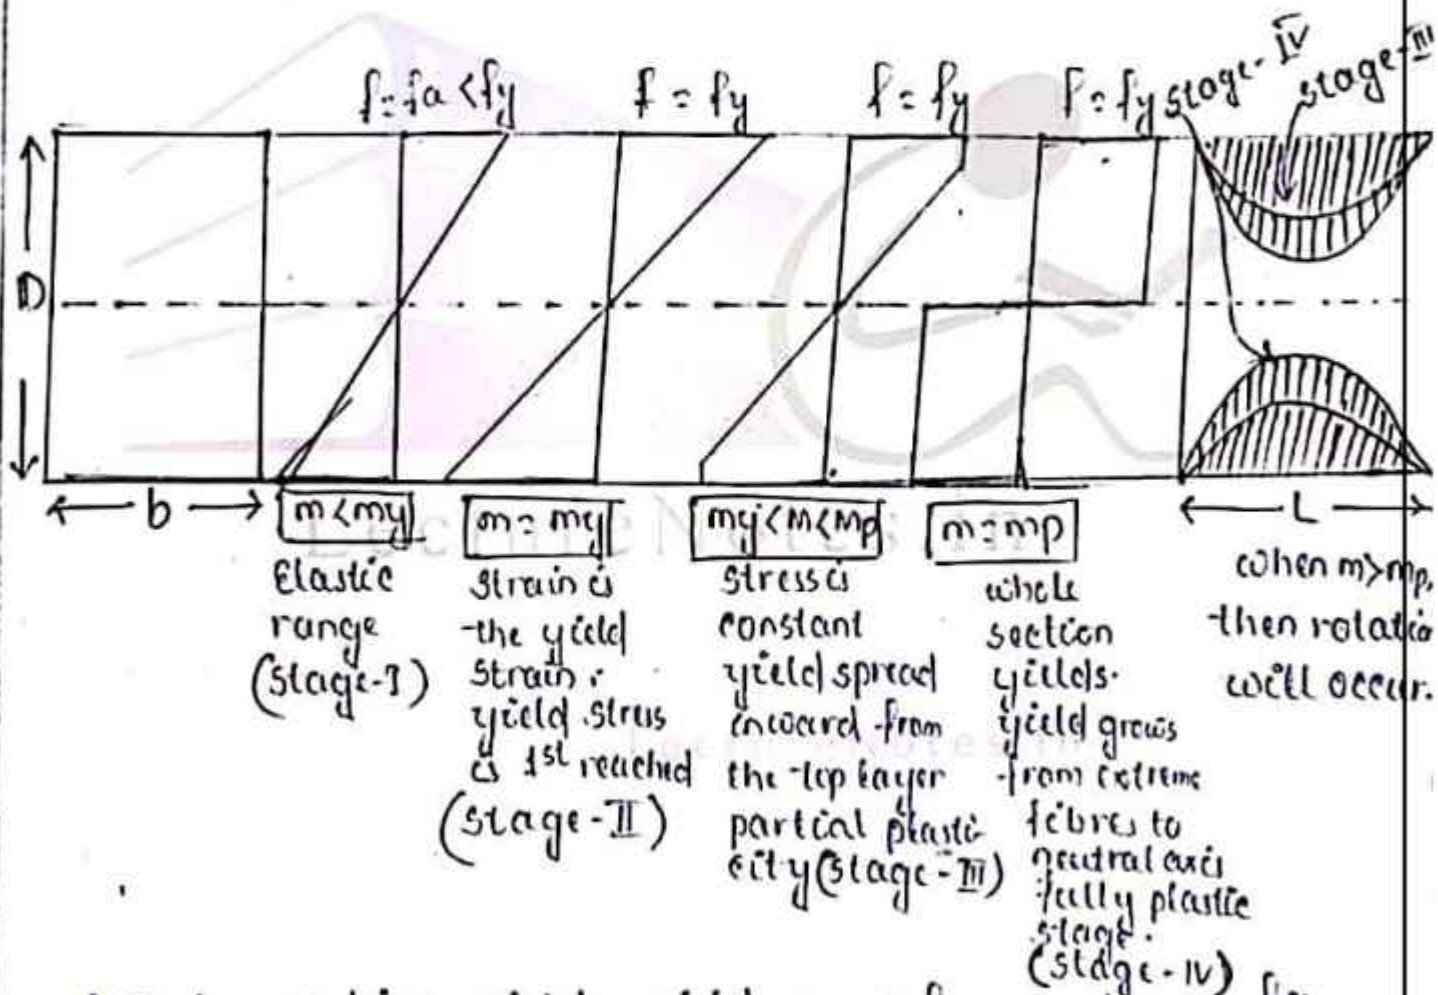 f = fa < fy
f = fy
f = fy
f = fy
stage-IV
stage-III
D
b
L
m < my
m = my
my < M < Mp
m = mp
Elastic
range
(Stage-I)
Strain is
the yield
Strain.
yield stress
is 1st reached
(Stage-II)
Stress is
constant
yield spread
inward from
the top layer
partial plasti
city (Stage-III)
whole
section
yields.
yield grows
from extreme
fibres to
neutral axis
fully plastic
stage.
(Stage-IV)
when m > mp,
then rotatio
will occur.